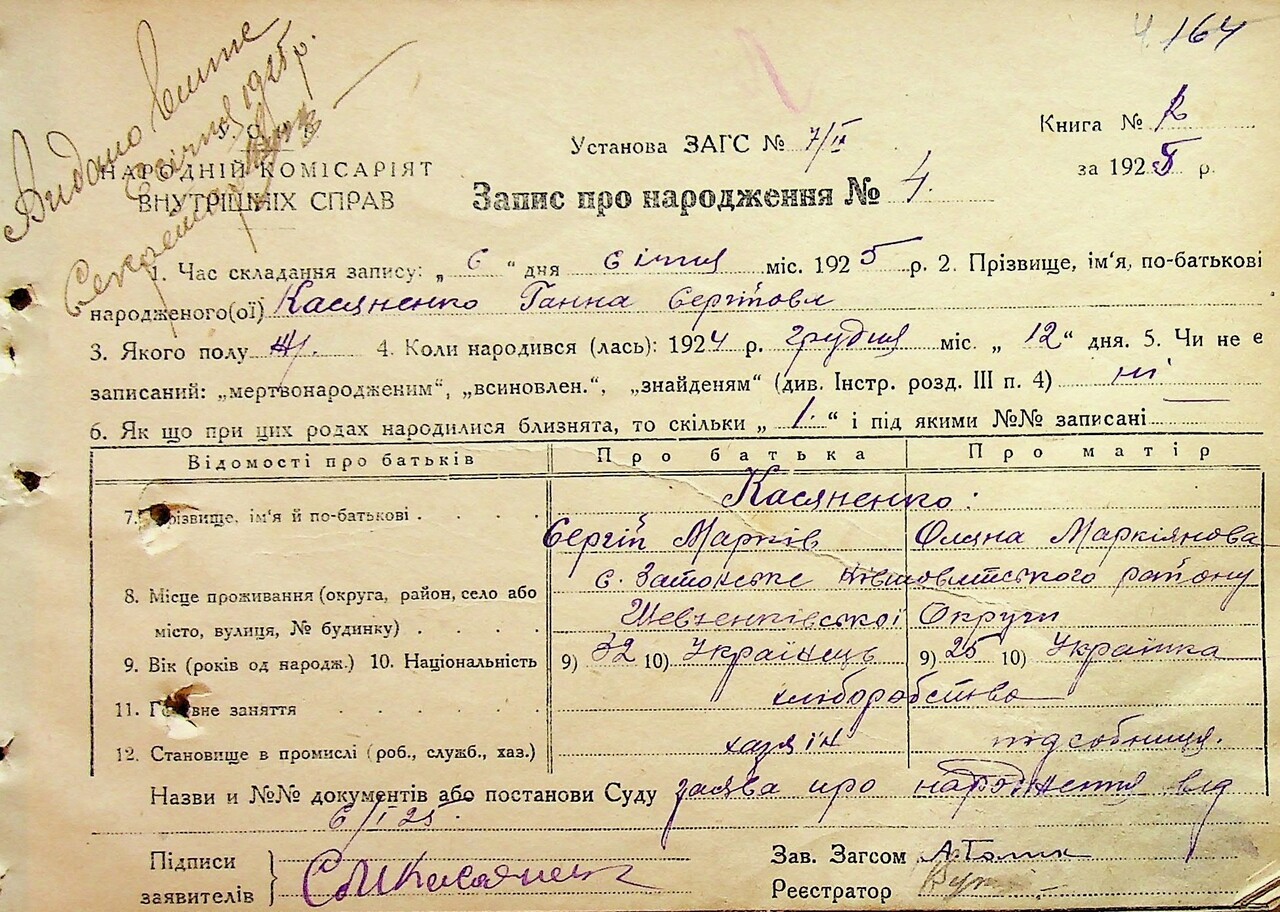 164
Видано
6 січня 1925 р.
У. С.
НАРОДНІЙ КОМІСАРІЯТ
ВНУТРІШНІХ СПРАВ
Установа ЗАГС № 7/II
Книга №
за 1925 р.
Запис про народження № 4.
1. Час складання запису: „ 6 “ дня січня міс. 1925 р. 2. Прізвище, ім'я, по-батькові
народженого(ої) Касяненко Ганна Сергіївна
3. Якого полу Ж. 4. Коли народився (лась): 1924 р. грудня міс. „ 12 “ дня. 5. Чи не є
записаний: „мертвонародженим“, „всиновлен.“, „знайденям“ (див. Інстр. розд. III п. 4) ні
6. Як що при цих родах народилися близнята, то скільки „ 1. “ і під якими №№ записані
Відомості про батьків Про батька Про матір
Касяненко:
7. Прізвище, ім'я й по-батькові Сергій Марків Оляна Маркіянова
8. Місце проживання (округа, район, село або с. Затонське району
місто, вулиця, № будинку) Шевченківської Округи
9. Вік (років од народж.) 10. Національність 9) 32 10) Українець 9) 25 10) Українка
11. Головне заняття хліборобство
12. Становище в промислі (роб., служб., хаз.) хазяїн підсобниця.
Назви и №№ документів або постанови Суду заява про народження від
6/I 25.
Підписи
заявителів
Зав. Загсом
Реєстратор